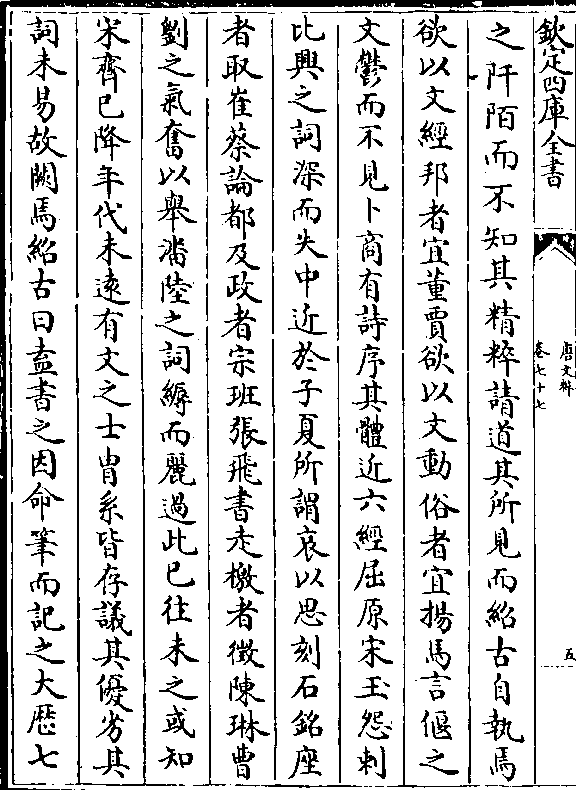 欽定四庫全書
唐文粹
卷七十七
五
之阡陌而不知其精粹請道其所見而紹古自執焉
欲以文經邦者宜董賈欲以文動俗者宜揚馬言偃之
文鬱而不見卜商有詩序其體近六經屈原宋玉怨刺
比興之詞深而失中近於子夏所謂哀以思刻石銘座
者取崔蔡論都及政者宗班張飛書走檄者徴陳琳曹
劉之氣奮以舉潘陸之詞縟而麗過此已往未之或知
宋齊已降年代未逺有文之士胄系皆存議其優劣其
詞未易故闕焉紹古曰盍書之因命筆而記之大厯七